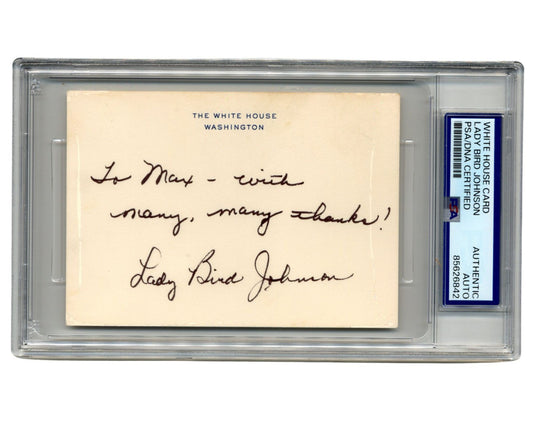 THE WHITE HOUSE
WASHINGTON
To Max – with
many, many thanks!
Lady Bird Johnson
WHITE HOUSE CARD
LADY BIRD JOHNSON
PSA/DNA CERTIFIED
PSA
AUTHENTIC
AUTO
85626842